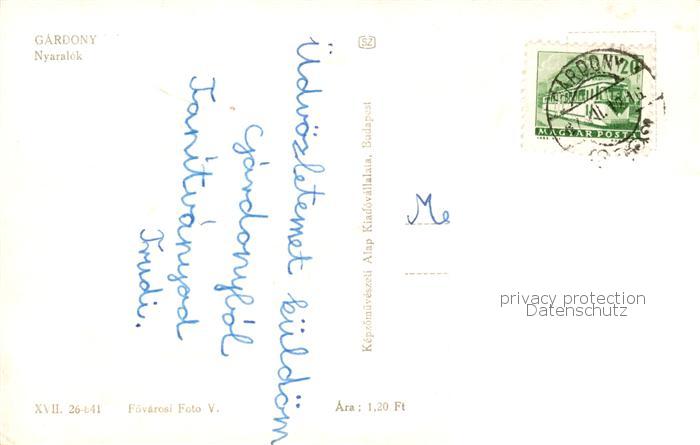 GÁRDONY
Nyaralók
SZ
Üdvözletemet küldöm
Gárdonyból
Tanítványod
Trudi.
Képzőművészeti Alap Kiadóvállalata, Budapest
GÁRDONY
MAGYAR POSTA
Me
privacy protection
Datenschutz
XVII. 26-641 Fővárosi Foto V. Ára: 1,20 Ft